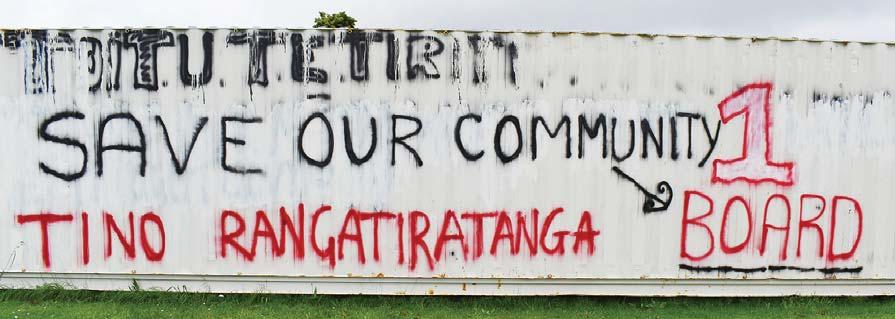 TOITU TE TIRITI
SAVE OUR COMMUNITY 1
BOARD
TINO RANGATIRATANGA